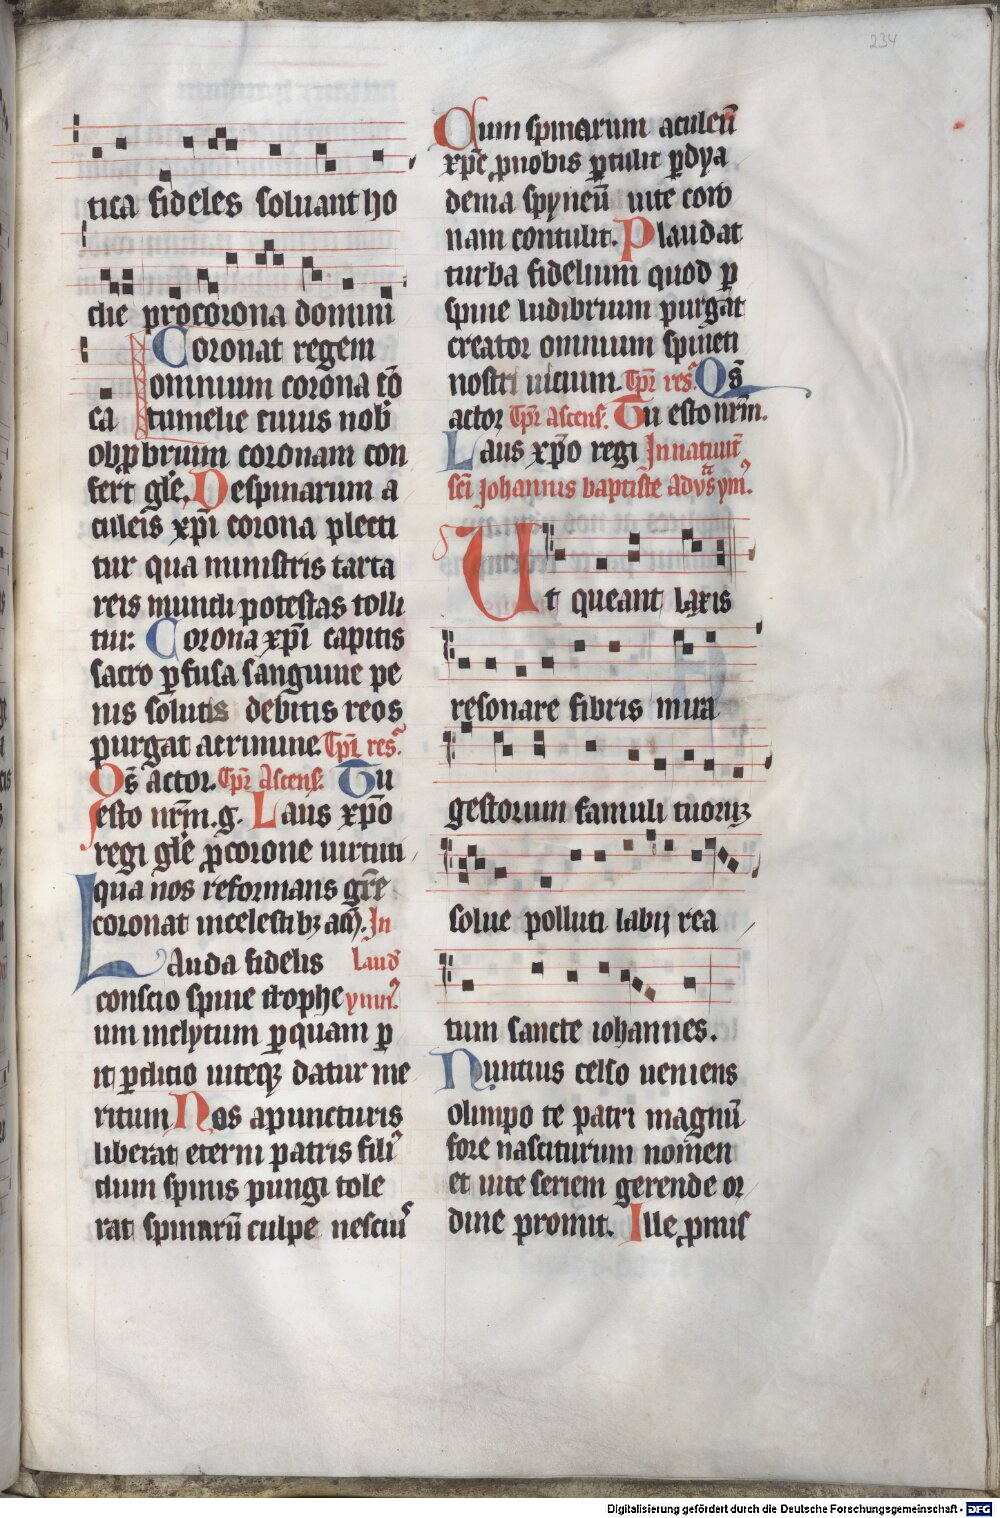 234
tica fideles soluant ho
die pro corona domini
Coronat regem
omnium corona cō
ca tumelie cuius nob̄
obꝓbrium coronam con
fert gl̄e. De spinarum a
culeis xp̄i corona plecti
tur qua ministris tarta
reis mundi potestas tolli
tur. Corona xp̄i capitis
sacro ꝑfusa sanguine pe
nis solutis debitis reos
purgat a crimine. Tp̄r res.
Qs̄ actor. Tp̄r Ascens. Tu
esto nr̄m. g. Laus xp̄o
regi gl̄e ꝓ corone uirtuti
qua nos reformans gr̄e
coronat in celestibꝫ am̄. In
Lauda fidelis laud̄
conscio spine trophe ymn.
um inclytum ꝑ quam ꝑ
it ꝑditio uiteqꝫ datur me
ritum Nos a puncturis
liberat eterni patris fili᷒
dum spinis pungi tole
rat spinarū culpe nesciu᷒
Cum spinarum aculeū
xp̄e ꝓ nobis ꝑtulit ꝑ dya
dema spyneū uite coro
nam contulit. Plaudat
turba fidelium quod ꝑ
spine ludibrium purgat
creator omnium spineti
nostri uicium. Tp̄r res. Qs̄
actor Tp̄r Ascens. Tu esto nr̄m.
Laus xp̄o regi In natiuit̄
sc̄i Johannis baptiste ad vs̄as ym᷒.
Ut queant laxis
resonare fibris mira
gestorum famuli tuoruꝫ
solue polluti labij rea
tum sancte iohannes.
Nuntius celso ueniens
olimpo te patri magnū
fore nasciturum nomen
et uite seriem gerende or
dine promit. Ille ꝓmis
Digitalisierung gefördert durch die Deutsche Forschungsgemeinschaft - DFG